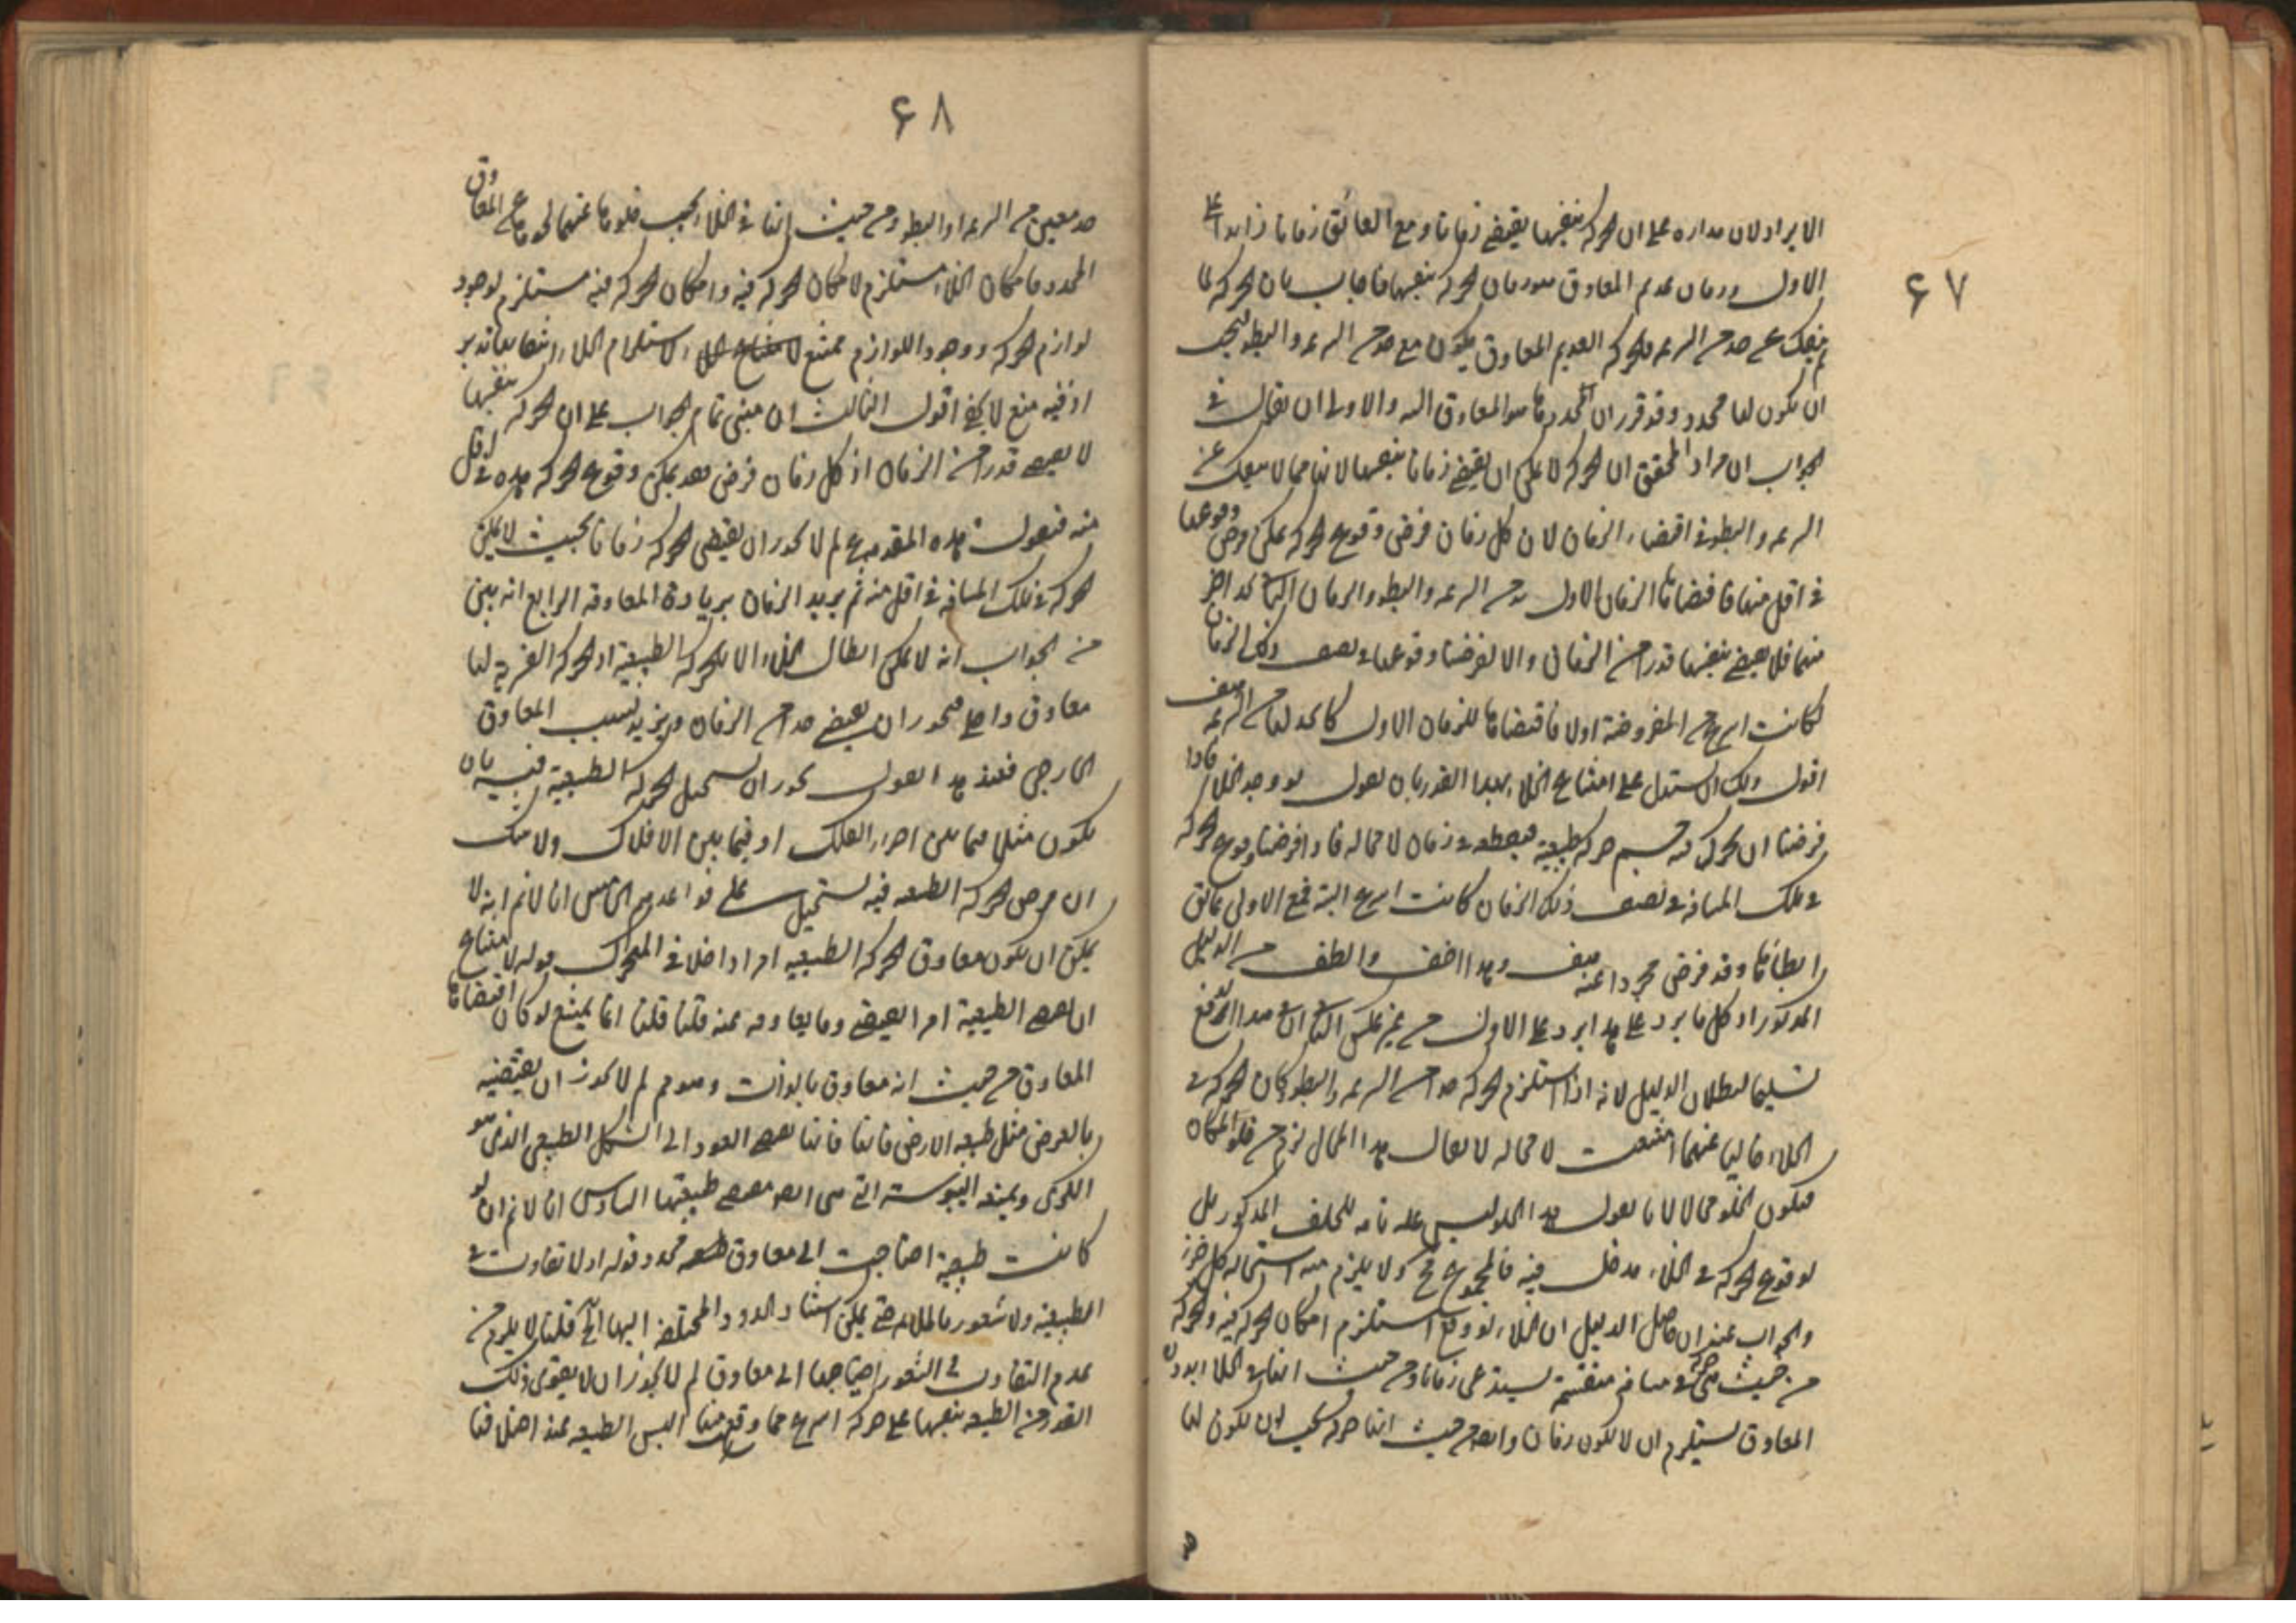 ۶۷
الايراد لان مداره على ان الحركة بنفسها يقتضي زمانا ومع العائق زمانا زايدا على
الاول وزمان عديم المعاوق هو زمان الحركة بنفسها فاجاب بان الحركة لما
لم ينفك عن حد من السرعة فالحركة العديم المعاوق يكون مع حد من السرعة والبطؤ فيجب
ان يكون لها محدد وقد قرر ان المحدد هو المعاوق والاولى ان يقال في
الجواب ان مراد المحقق ان الحركة لا يمكن ان يقتضي زمانا بنفسها لانها مما لا ينفك عن
السرعة والبطؤ في اقتضاء الزمان لان كل زمان فرض وقوع الحركة يمكن فرض وقوعها
في اقل منها فاقتضاءها الزمان الاول حد من السرعة والبطؤ والزمان الثاني حد اخر
منهما فلا يقتضي بنفسها قدرا من الزمان والا لو فرضنا وقوعها في نصف ذلك الزمان
لكانت اسرع من المفروضة اولا فاقتضاءها للزمان الاول كان لها من السرعة
اقول ولك ان تستدل على امتناع الخلاء بهذا القدر بان نقول لو وجد الخلا فاذا
فرضنا ان تحرك فيه جسم حركة طبيعية فيقطعه في زمان لا محالة فاذا فرضنا وقوع الحركة
في تلك المسافة في نصف ذلك الزمان كانت اسرع البتة فمع الاولى عائق
ابطاها وقد فرض مجردا عنه هف وهذا اخف والطف من الدليل
المذكور اذ كل ما يرد على هذا يرد على الاول من غير عكس الثاني ان هذا الدفع
تسليم لبطلان الدليل لانه اذا استلزم الحركة حدا من السرعة والبطؤ كان الحركة في
الخلاء خاليا عنهما امتنعت لا محالة لا يقال هذا المحال لزم من خلو المكان
فيكون الخلو محالا لانا نقول هذا الخلو ليس علة تامة للخلف المذكور بل
لوقوع الحركة في الخلاء مدخل فيه فالمجموع مح ولا يلزم منه استحالة كل جزء
والجواب عنه ان حاصل الدليل ان الخلاء لو وقع استلزم امكان الحركة فيه والحركة
من حيث هي حركة في مسافة منقسمة يستدعي زمانا ومن حيث انها في الخلا بدون
المعاوق يستلزم ان لا يكون زمان وايضا من حيث انها حركة يجب ان يكون لها
۶۸
حد معين من السرعة او البطؤ ومن حيث انها في الخلا يجب خلوها عنهما لخلوها عن المعاوق
المحدد فامكان الخلاء مستلزم لامكان الحركة فيه وامكان الحركة فيه مستلزم لوجود
لوازم الحركة ووجود اللوازم ممتنع لاستلزام الخلاء انتفاءها تدبر
اذ فيه منع لا يخفى اقول الثالث ان مبنى تمام الجواب على ان الحركة بنفسها
لا يقتضي قدرا من الزمان اذ كل زمان فرض فقد يمكن وقوع الحركة هذه في اقل
منه فنقول هذه المقدمة مم لم لا يجوز ان يقتضي الحركة زمانا بحيث لا يمكن
الحركة في تلك المسافة في اقل منه ثم يزيد الزمان بزيادة المعاوقة الرابع انه يبنى
من الجواب انه لا يمكن ابطال الخلاء الا بالحركة الطبيعية اذ الحركة القسرية لها
معاوق داخلي فيجوز ان يقتضي حدا من الزمان ويزيد بسبب المعاوق
الخارجي فعند هذا القول يجوز ان يستحيل الحركة الطبيعية فيه بان
يكون مثلا فيما بين اجزاء الفلك او فيما بين الافلاك ولا شك
ان فرض الحركة الطبيعية فيه يستحيل على قواعدهم الخامس انا لا نم انه لا
يمكن ان يكون معاوق الحركة الطبيعية امرا داخلا في المتحرك قوله لامتناع
ان يقتضي الطبيعة امرا ويقتضي وما يعاوقه عنه قلنا قلنا انما يمتنع لو كان اقتضاءها
المعاوق من حيث انه معاوق بالذات وهو مم لم لا يجوز ان يقتضيه
بالعرض مثل طبيعة الارض فانها يقتضي العود الى الشكل الطبيعي الذي هو
الكرى ويمنعه اليبوسة التي هي ايضا مقتضى طبيعتها السادس انا لا نم ان لو
كانت طبيعية احتاجت الى معاوق محدد قوله اذ لا تفاوت في
الطبيعة ولا شعور بالملايم حتى يمكن استناد الحدود المختلفة اليها الخ قلنا لا يلزم من
عدم التفاوت في الشعور احتياجها الى معاوق لم لا يجوز ان لا يقوى ذلك
القدر من الطبيعة بنفسها على حركة اسرع مما وقع منها اليس الطبيعة عند اختلافها